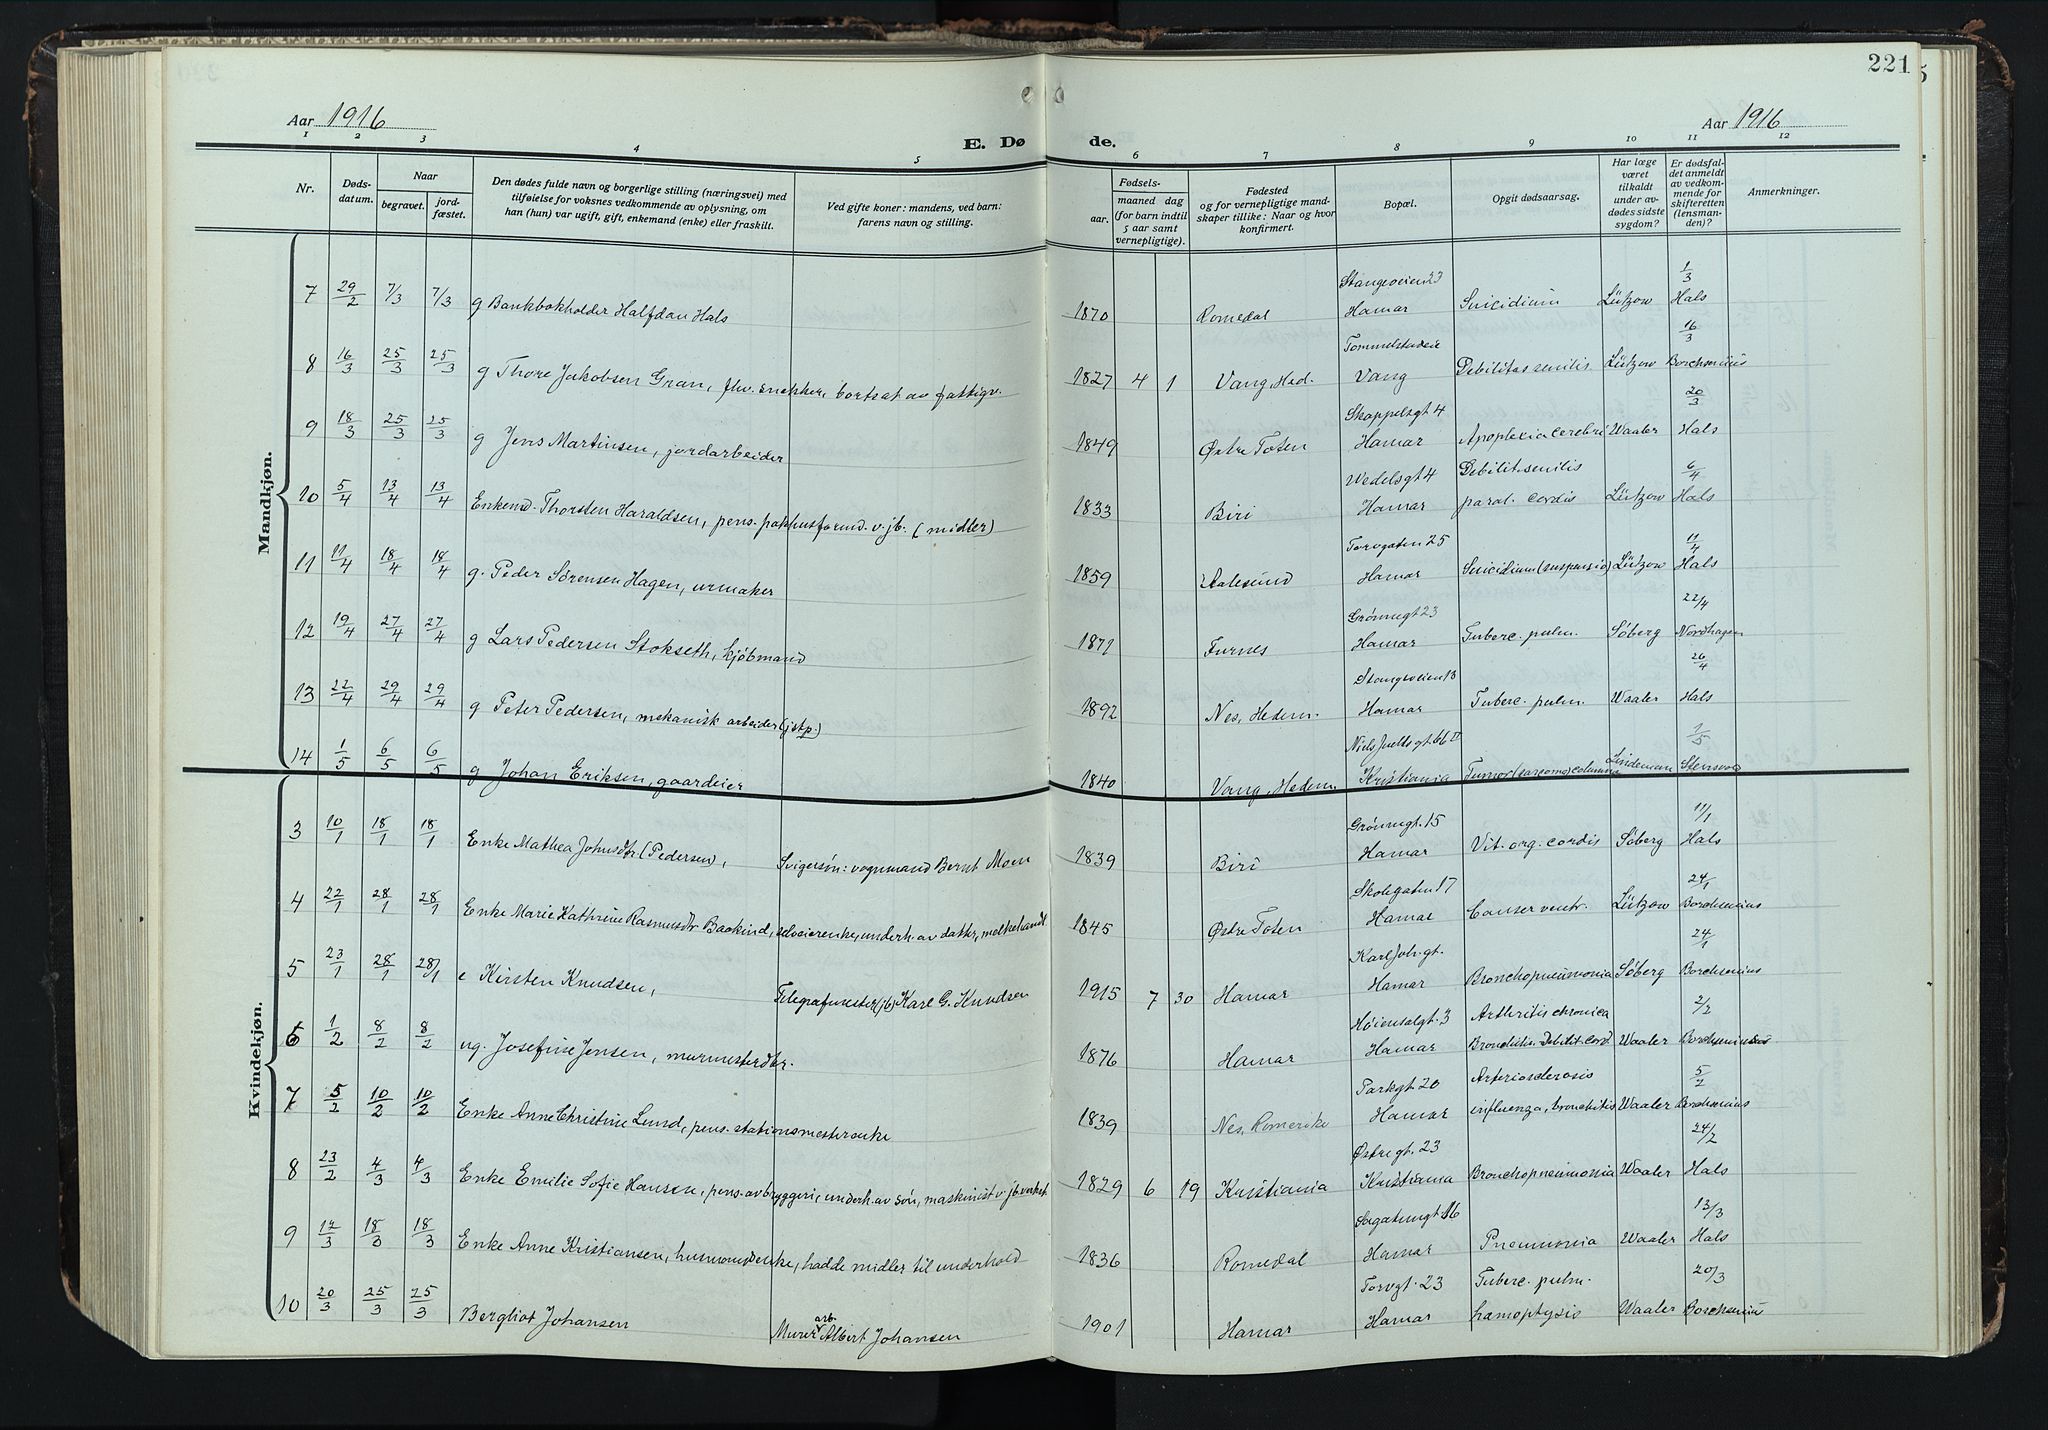 221
Aar 1916
Aar 1916
E. Døde.
1 2 3 4 5 6 7 8 9 10 11 12
Nr.
Døds-datum.
Naar
begravet.
jord-fæstet.
Den dødes fulde navn og borgerlige stilling (næringsvei) med tilføielse for voksnes vedkommende av oplysning, om han (hun) var ugift, gift, enkemand (enke) eller fraskilt.
Ved gifte koner: mandens, ved barn: farens navn og stilling.
Fødsels-
aar.
maaned dag (for barn indtil 5 aar samt vernepligtige).
Fødested og for vernepligtige mandskaper tillike: Naar og hvor konfirmert.
Bopæl.
Opgit dødsaarsag.
Har læge været tilkaldt under avdødes sidste sygdom?
Er dødsfaldet anmeldt av vedkommende for skifteretten (lensmanden)?
Anmerkninger.
Mandkjøn.
7 29/2 7/3 7/3 g Bankbokholder Halfdan Hals 1870 Romedal Stangeveien 23 Hamar Suicidium Lützow 1/3 Hals
8 16/3 25/3 25/3 g Thore Jakobsen Gran, fhv. snekker, bortsat av fattigv. 1827 4 1 Vang, Hed. Tommelstadeie Vang Debilitas senilis Lützow 16/3 Borchsenius
9 18/3 25/3 25/3 g Jens Martinsen, jordarbeider 1849 Østre Toten Skappelsgt 4 Hamar Apoplexia cerebri Waaler 20/3 Hals
10 5/4 13/4 13/4 Enkemd. Thorsten Haraldsen, pens. pakhusformd. v. jb. (midler) 1833 Biri Wedelsgt 4 Hamar Debilit. senilis paral. cordis Lützow 6/4 Hals
11 11/4 18/4 18/4 g. Peder Sørensen Hagen, urmaker 1859 Aalesund Torvgaten 25 Hamar Suicidium (suspensio) Lützow 11/4 Hals
12 19/4 27/4 27/4 g Lars Pedersen Stokseth, kjøbmand 1871 Furnes Grønnegt 23 Hamar Tuberc. pulm. Søberg 22/4 Nordhagen
13 22/4 29/4 29/4 g Peter Pedersen, mekanisk arbeider (jstp.) 1892 Nes, Hedem. Stangeveien 13 Hamar Tuberc. pulm. Waaler 26/4 Hals
14 1/5 6/5 6/5 g Johan Eriksen, gaardeier 1840 Vang, Hedem. Niels Juels gt. 66 II Kristiania Tumor (sarcoma) columna Lindeman /5
Kvindekjøn.
3 10/1 18/1 18/1 Enke Mathea Johnsdtr (Pedersen), Svigersøn: vognmand Bernt Moen 1839 Biri Grønnegt. 15 Hamar Vit. org. cordis Søberg 11/1 Hals
4 22/1 28/1 28/1 Enke Marie Kathrine Rasmusdtr Baekind, selveierenke, underh. av datter, melkehandl. 1845 Østre Toten Skolegaten 17 Hamar Cancer ventr. Lützow 24/1 Borchsenius
5 23/1 28/1 28/1 e Kirsten Knudsen, Telegrafmester (jb) Karl G. Knudsen 1915 7 30 Hamar Karl Joh. gt. Hamar Bronchopneumonia Søberg 24/1 Borchsenius
6 1/2 8/2 8/2 ug. Josefine Jensen, murmesterdtr. 1876 Hamar Høiensalgt. 3 Hamar Arthritis chronica Bronchitis. Debilit. cord Waaler 2/2 Borchsenius
7 5/2 10/2 10/2 Enke Anne Christine Lund, pens. stationsmesterenke 1839 Nes, Romerike Parkgt. 20 Hamar Arteriosclerosis influenza, bronchitis Waaler 5/2 Borchsenius
8 23/2 4/3 4/3 Enke Emilie Sofie Hansen, pens. av bryggeri, underh. av søn, maskinist v. jb. verkst. 1829 6 19 Kristiania Østregt. 23 Kristiania Bronchopneumonia Waaler 24/2 Hals
9 12/3 18/3 18/3 Enke Anne Kristiansen, husmandsenke, hadde midler til underhold 1836 Romedal 16 Hamar Pneumonia Waaler 13/3 Hals
10 20/3 25/3 25/3 Bergliot Johansen Murerarb. Albert Johansen 1901 Hamar Torvgt. 23 Hamar Tuberc. pulm. hæmoptysis Waaler 20/3 Borchsenius